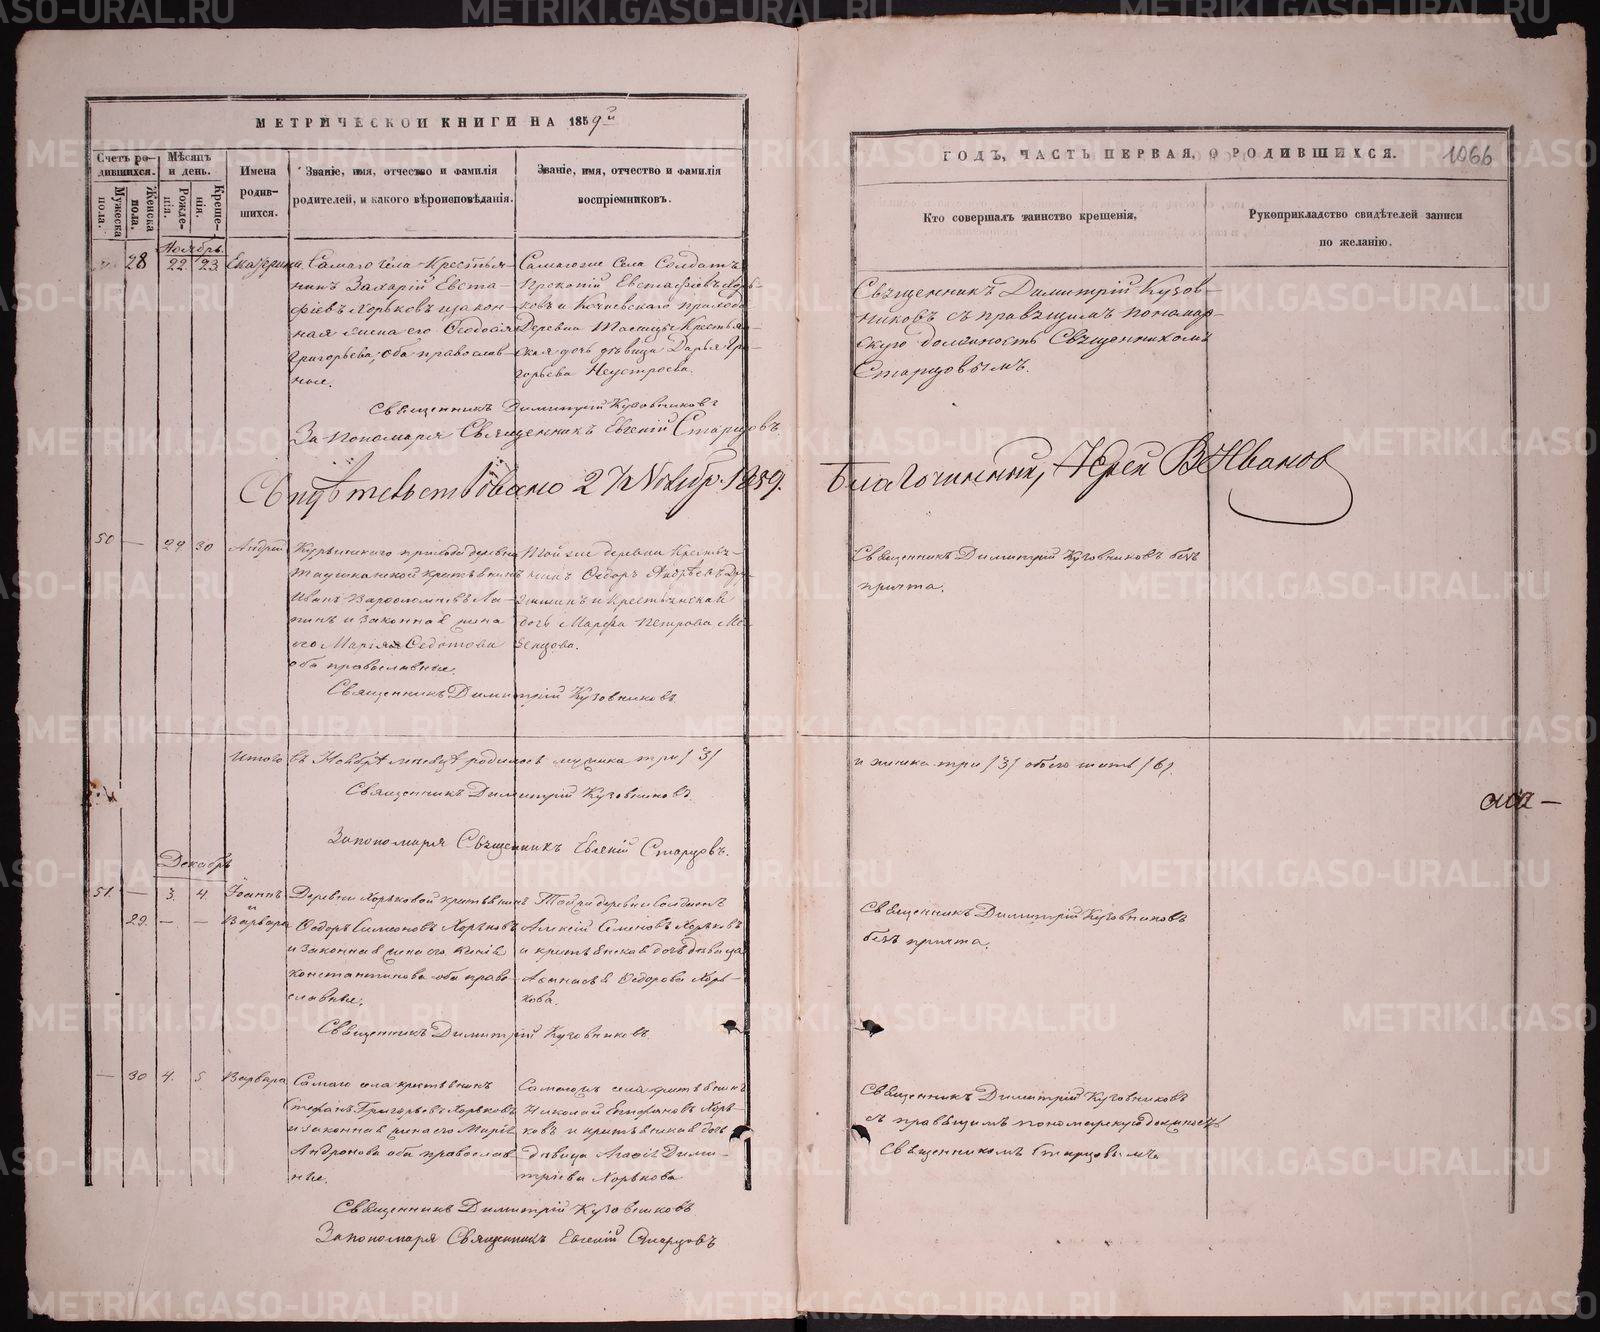 МЕТРИЧЕСКОЙ КНИГИ НА 1859й
Счетъ ро-
дившихся.
Мужеска
пола.
Женска
пола.
Мѣсяцъ
и день.
Рожде-
нія.
Креще-
нія.
Имена
родив-
шихся.
Званіе, имя, отчество и фамилія
родителей, и какого вѣроисповѣданія.
Званіе, имя, отчество и фамилія
воспріемниковъ.
Ноябрь.
28 22. 23. Екатерина.
Самаго села Крестья-
нинъ Захарій Евста-
фіевъ Хорьковъ и закон-
ная жена его Ѳеодосія
Григорьева, оба православ-
ные.
Самагоже села Солдатъ
Прокопій Евстафіевъ Хорь-
ковъ и Кочневскаго прихода
Деревни Крестья-
ская дочь дѣвица Дарья Гри-
горьева Неустроева.
Священникъ Димитрій Кузовниковъ
За пономаря Священникъ Евгеній Старцовъ.
Свидѣтельствовано 27 Ноябр. 1859.
50 — 29 30 Андрей
прихода деревни
крестьянинъ
Иванъ Варѳоломеевъ Ла-
пинъ и законная жена
его Марія Ѳедотова
оба православные.
Той же деревни Крестья-
нинъ Ѳедоръ
и Крестьянская
дочь Марѳа Петрова
Священникъ Димитрій Кузовниковъ.
Итого въ Ноябрѣ мѣсяцѣ родилось мужеска три /3/
Священникъ Димитрій Кузовниковъ.
За пономаря Священникъ Евгеній Старцовъ.
Декабрь
51. — 3. 4. Іоаннъ
и
29. — — Варвара
Деревни Хорьковой крестьянинъ
Ѳедоръ Симеоновъ Хорьковъ
и законная жена его
Константинова оба право-
славные.
Той же деревни солдатъ
Алексій Семеновъ Хорьковъ
и крестьянская дочь дѣвица
Аѳанасья Ѳедорова Хорь-
кова.
Священникъ Димитрій Кузовниковъ.
— 30 4. 5. Варвара
Самаго села крестьянинъ
Стефанъ Григорьевъ Хорьковъ
и законная жена его Марія
Андронова оба православ-
ные.
Самагожъ села крестьянинъ
Николай Епифановъ Хорь-
ковъ и крестьянская дочь
дѣвица Агафія Дими-
тріева Хорькова
Священникъ Димитрій Кузовниковъ
За пономаря Священникъ Евгеній Старцовъ
ГОДЪ, ЧАСТЬ ПЕРВАЯ, О РОДИВШИХСЯ.
1066
Кто совершалъ таинство крещенія,
Рукоприкладство свидѣтелей записи
по желанію.
Священникъ Димитрій Кузов-
никовъ съ правящимъ понамар-
скую должность Священникомъ
Старцовымъ.
Благочинный, Іерей В Ивановъ
Священникъ Димитрій Кузовниковъ безъ
причта.
и женска три /3/ обоего шесть /6/.
Священникъ Димитрій Кузовниковъ
безъ причта.
Священникъ Димитрій Кузовниковъ
съ правящимъ пономарскую должность
Священникомъ Старцовымъ.
METRIKI.GASO-URAL.RU